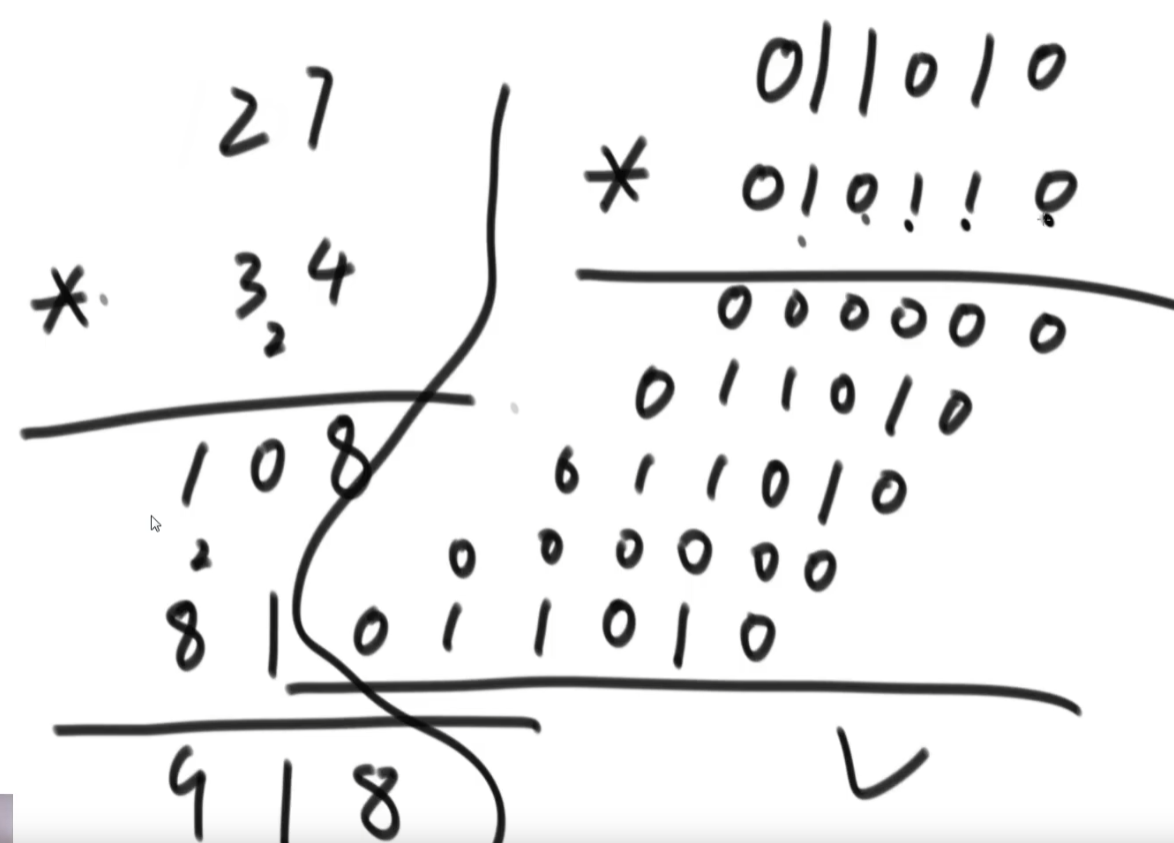 27
* 34
2
108
2
81
918
011010
* 010110
000000
011010
011010
000000
011010